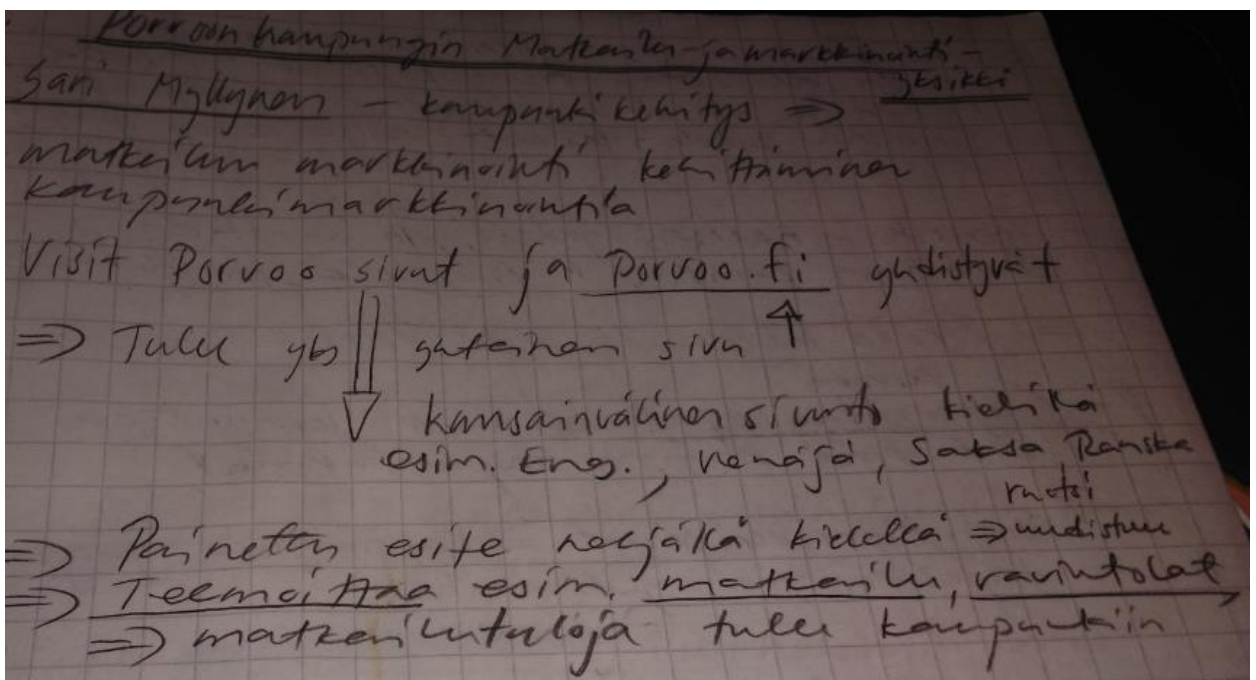 Porvoon kaupungin Matkailu- ja markkinointi-
yksikkö
Sari Myllynen – kaupunkikehitys ⇒
matkailun markkinointi kehittäminen
kaupunkimarkkinointia
Visit Porvoo sivut ja porvoo.fi yhdistyvät
⇒ Tulee yhteinen sivu
kansainvälinen sivusto kieliä
esim. Eng., venäjä, Saksa Ranska
ruotsi
⇒ Painettu esite neljällä kielellä ⇒ uudistuu
⇒ Teemoittaa esim. matkailu, ravintolat,
⇒ matkailutuloja tulee kaupunkiin